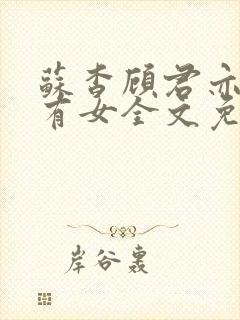 蘇杳顾君亦
有女全文免
岸谷裏